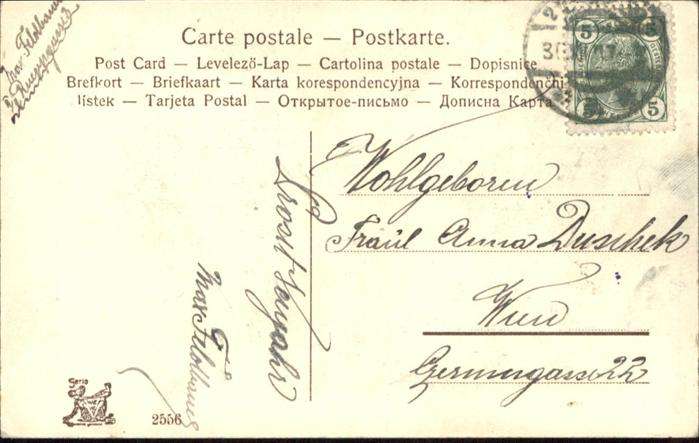 Carte postale — Postkarte.
Post Card — Levelező-Lap — Cartolina postale — Dopisnice
Brefkort — Briefkaart — Karta korespondencyjna — Korrespondenčni
lístek — Tarjeta Postal — Открытое-письмо — Дописна Карта
5 5
5 5
Wohlgeboren
Fräul Anna Duschek
Wien
Germergasse 22
Prosit Neujahr
Max Feldbaum
Serie
2556